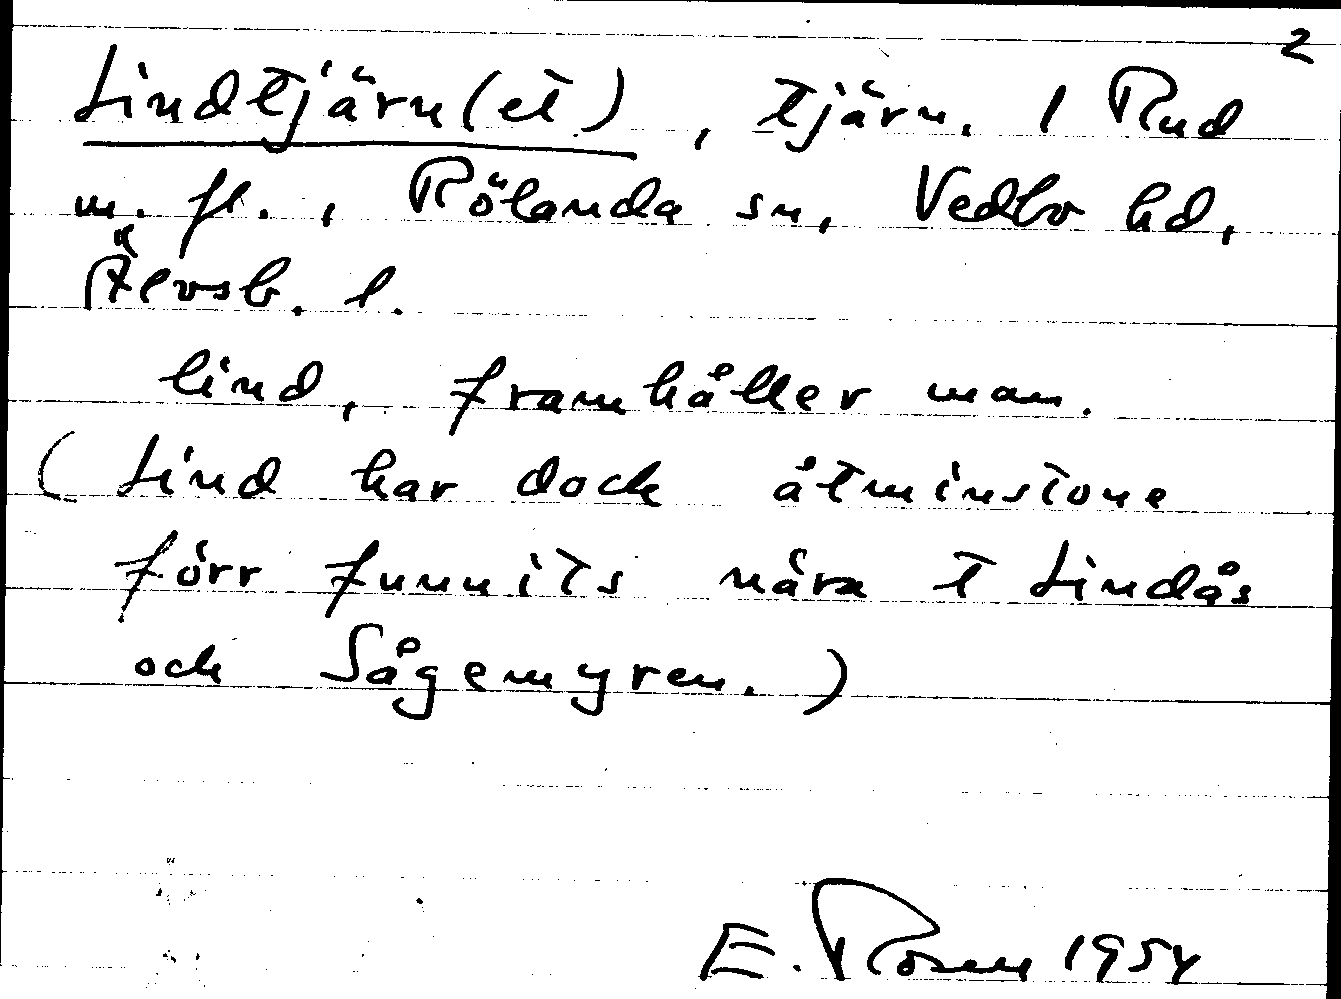 2
Lindtjärn(et), tjärn. / Rud
m. fl., Rölanda sn, Vedbo hd,
Älvsb. l.
lind, framhåller man.
(Lind har dock åtminstone
förr funnits nära t Lindås
och Sågemyren.)
E. Rosen 1954